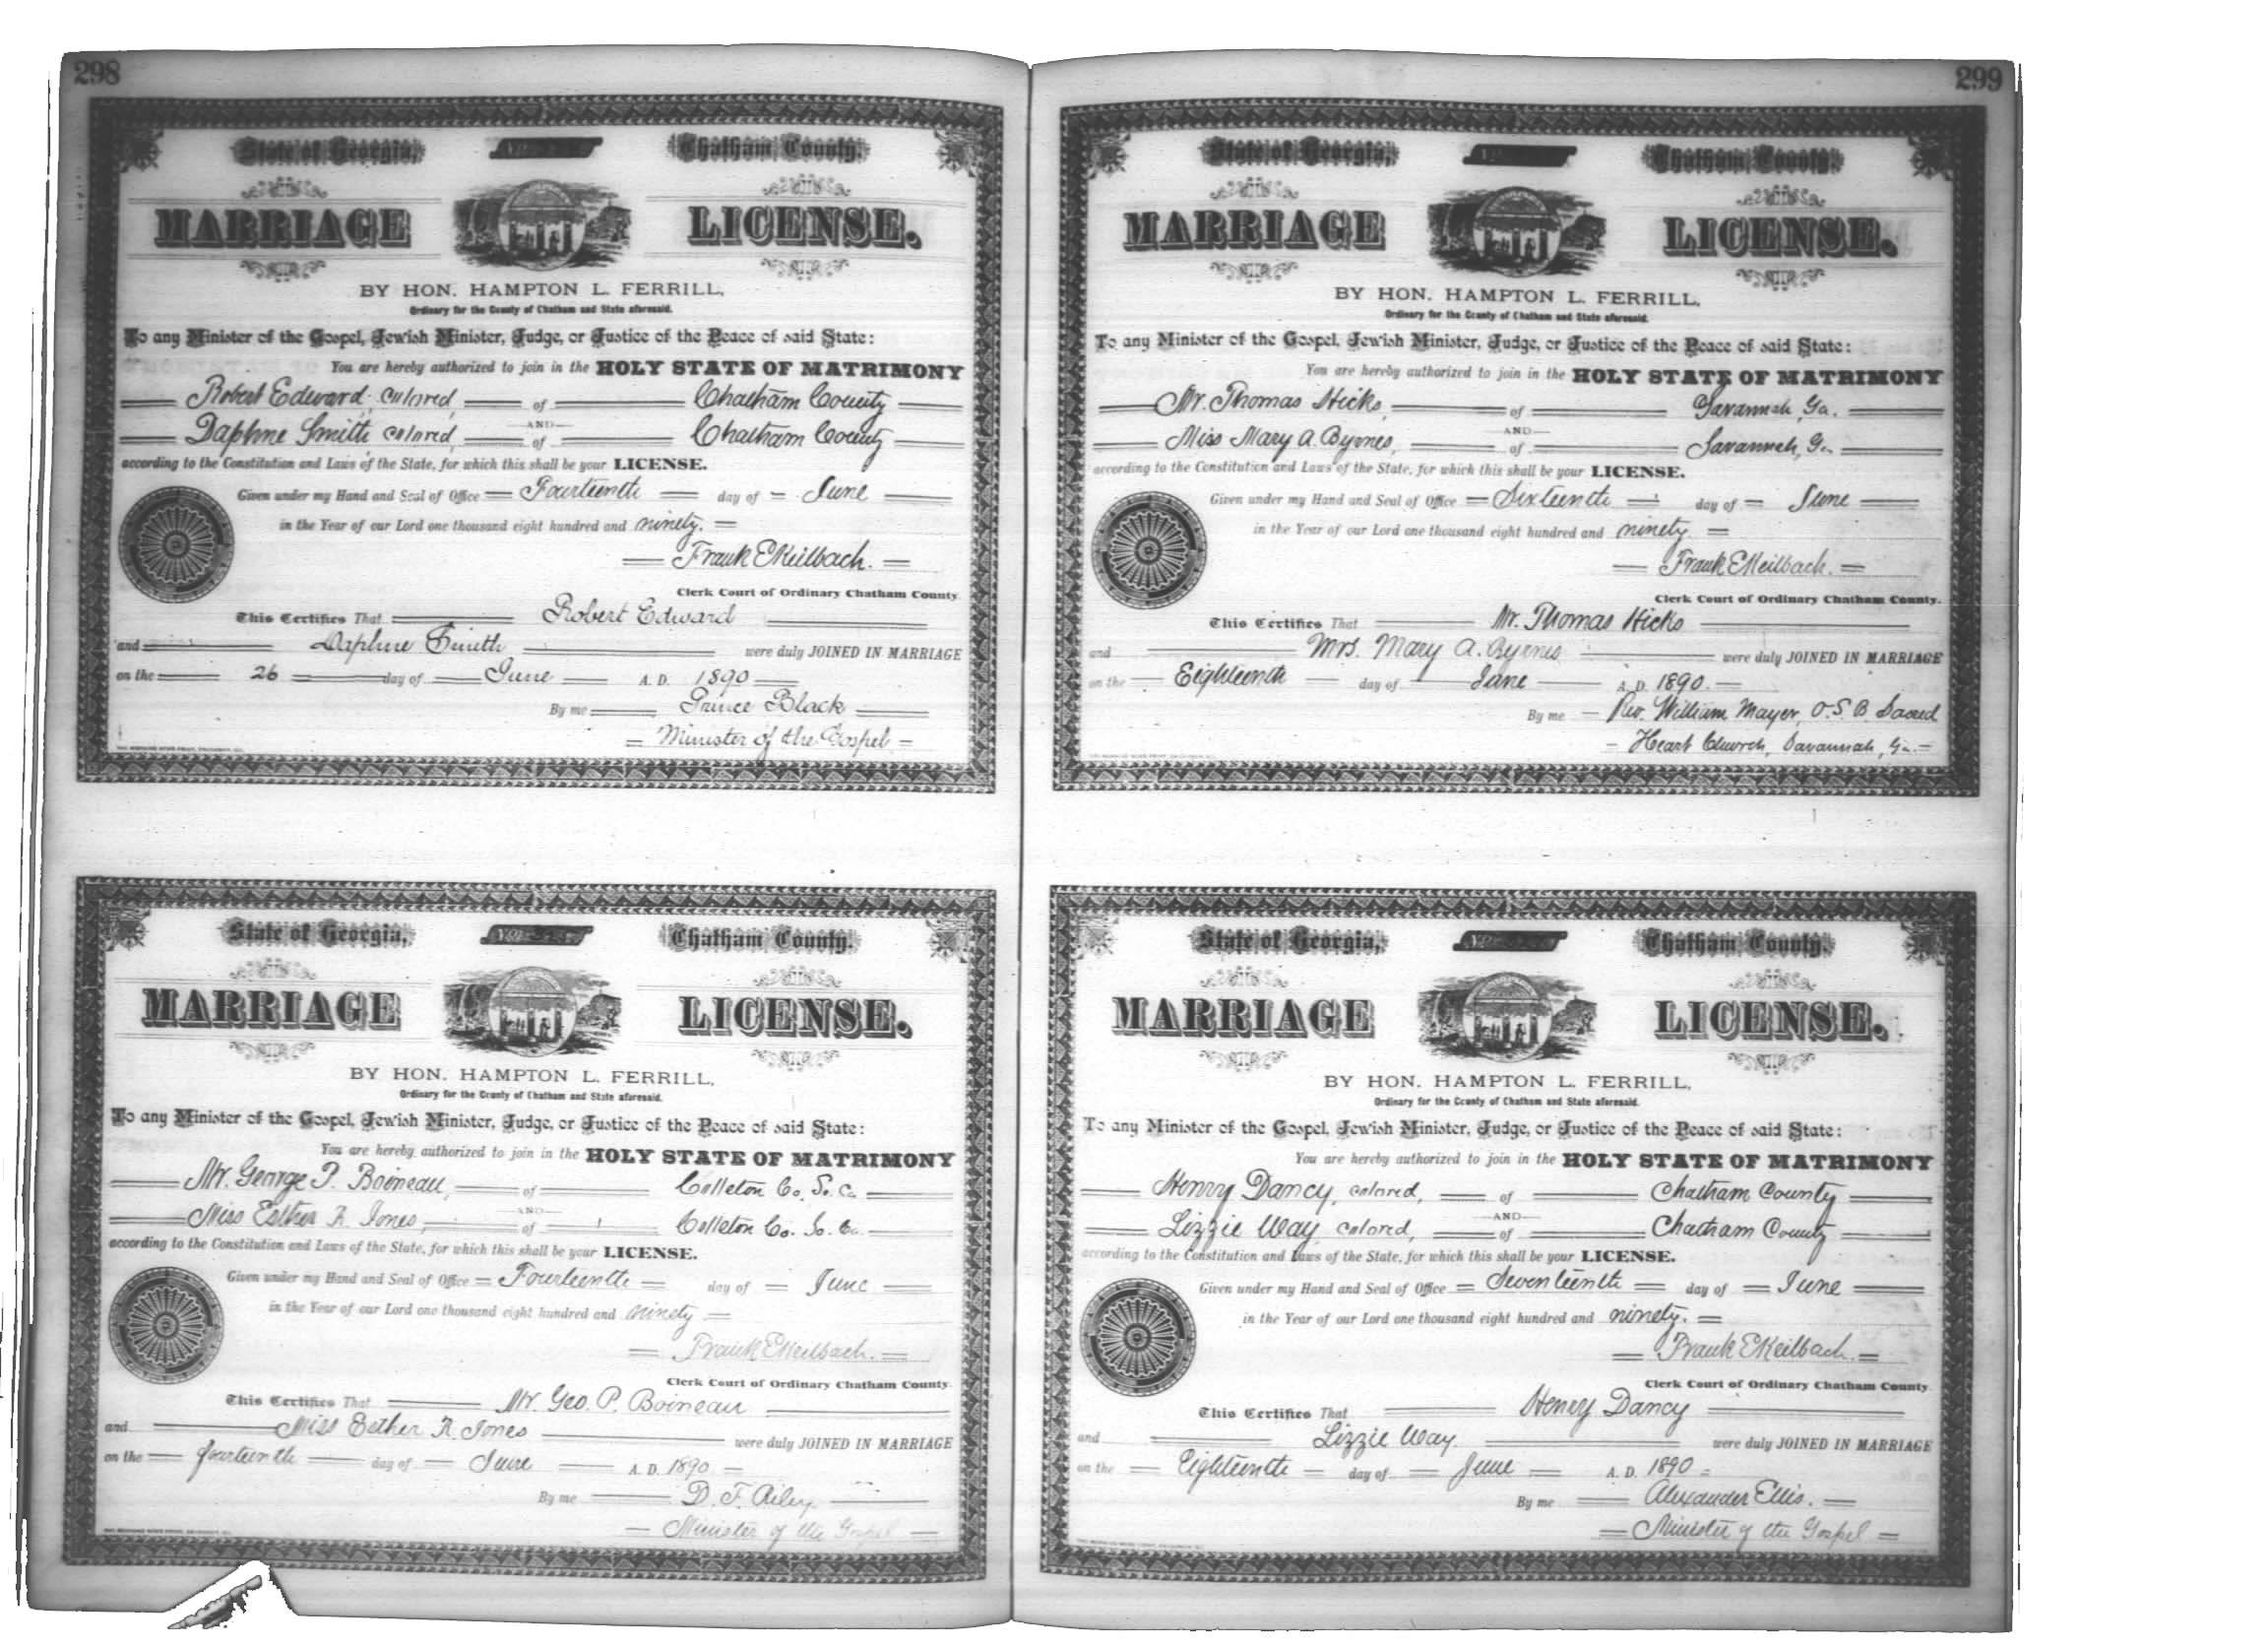 298
State of Georgia, Chatham County.
MARRIAGE LICENSE.
BY HON. HAMPTON L. FERRILL,
Ordinary for the County of Chatham and State aforesaid.
To any Minister of the Gospel, Jewish Minister, Judge, or Justice of the Peace of said State:
You are hereby authorized to join in the HOLY STATE OF MATRIMONY
Robert Edward, colored, of Chatham County
AND
Daphne Smith colored, of Chatham County
according to the Constitution and Laws of the State, for which this shall be your LICENSE.
Given under my Hand and Seal of Office Fourteenth day of June
in the Year of our Lord one thousand eight hundred and ninety.
Frank E Keilbach.
Clerk Court of Ordinary Chatham County.
This Certifies That Robert Edward
and Daphne Smith were duly JOINED IN MARRIAGE
on the 26 day of June A. D. 1890
By me Prince Black
Minister of the Gospel
State of Georgia, Chatham County.
MARRIAGE LICENSE.
BY HON. HAMPTON L. FERRILL,
Ordinary for the County of Chatham and State aforesaid.
To any Minister of the Gospel, Jewish Minister, Judge, or Justice of the Peace of said State:
You are hereby authorized to join in the HOLY STATE OF MATRIMONY
Mr. George P. Boineau, of Colleton Co. So. Ca.
AND
Miss Esther R. Jones, of Colleton Co. So. Ca.
according to the Constitution and Laws of the State, for which this shall be your LICENSE.
Given under my Hand and Seal of Office Fourteenth day of June
in the Year of our Lord one thousand eight hundred and ninety
Frank E Keilbach.
Clerk Court of Ordinary Chatham County.
This Certifies That Mr. Geo. P. Boineau
and Miss Esther R. Jones were duly JOINED IN MARRIAGE
on the fourteenth day of June A. D. 1890
By me D. F. Riley
Minister of the Gospel
299
State of Georgia, Chatham County.
MARRIAGE LICENSE.
BY HON. HAMPTON L. FERRILL,
Ordinary for the County of Chatham and State aforesaid.
To any Minister of the Gospel, Jewish Minister, Judge, or Justice of the Peace of said State:
You are hereby authorized to join in the HOLY STATE OF MATRIMONY
Mr. Thomas Hicks, of Savannah, Ga.
AND
Miss Mary A. Byrnes, of Savannah, Ga.
according to the Constitution and Laws of the State, for which this shall be your LICENSE.
Given under my Hand and Seal of Office Sixteenth day of June
in the Year of our Lord one thousand eight hundred and ninety
Frank E Keilbach.
Clerk Court of Ordinary Chatham County.
This Certifies That Mr. Thomas Hicks
and Mrs. Mary A. Byrnes were duly JOINED IN MARRIAGE
on the Eighteenth day of June A. D. 1890.
By me Rev. William Mayer, O.S.B. Sacred
Heart Church, Savannah, Ga.
State of Georgia, Chatham County.
MARRIAGE LICENSE.
BY HON. HAMPTON L. FERRILL,
Ordinary for the County of Chatham and State aforesaid.
To any Minister of the Gospel, Jewish Minister, Judge, or Justice of the Peace of said State:
You are hereby authorized to join in the HOLY STATE OF MATRIMONY
Henry Dancy, colored, of Chatham County
AND
Lizzie Way, colored, of Chatham County
according to the Constitution and Laws of the State, for which this shall be your LICENSE.
Given under my Hand and Seal of Office Seventeenth day of June
in the Year of our Lord one thousand eight hundred and ninety.
Frank E Keilbach.
Clerk Court of Ordinary Chatham County.
This Certifies That Henry Dancy
and Lizzie Way. were duly JOINED IN MARRIAGE
on the Eighteenth day of June A. D. 1890
By me Alexander Ellis.
Minister of the Gospel